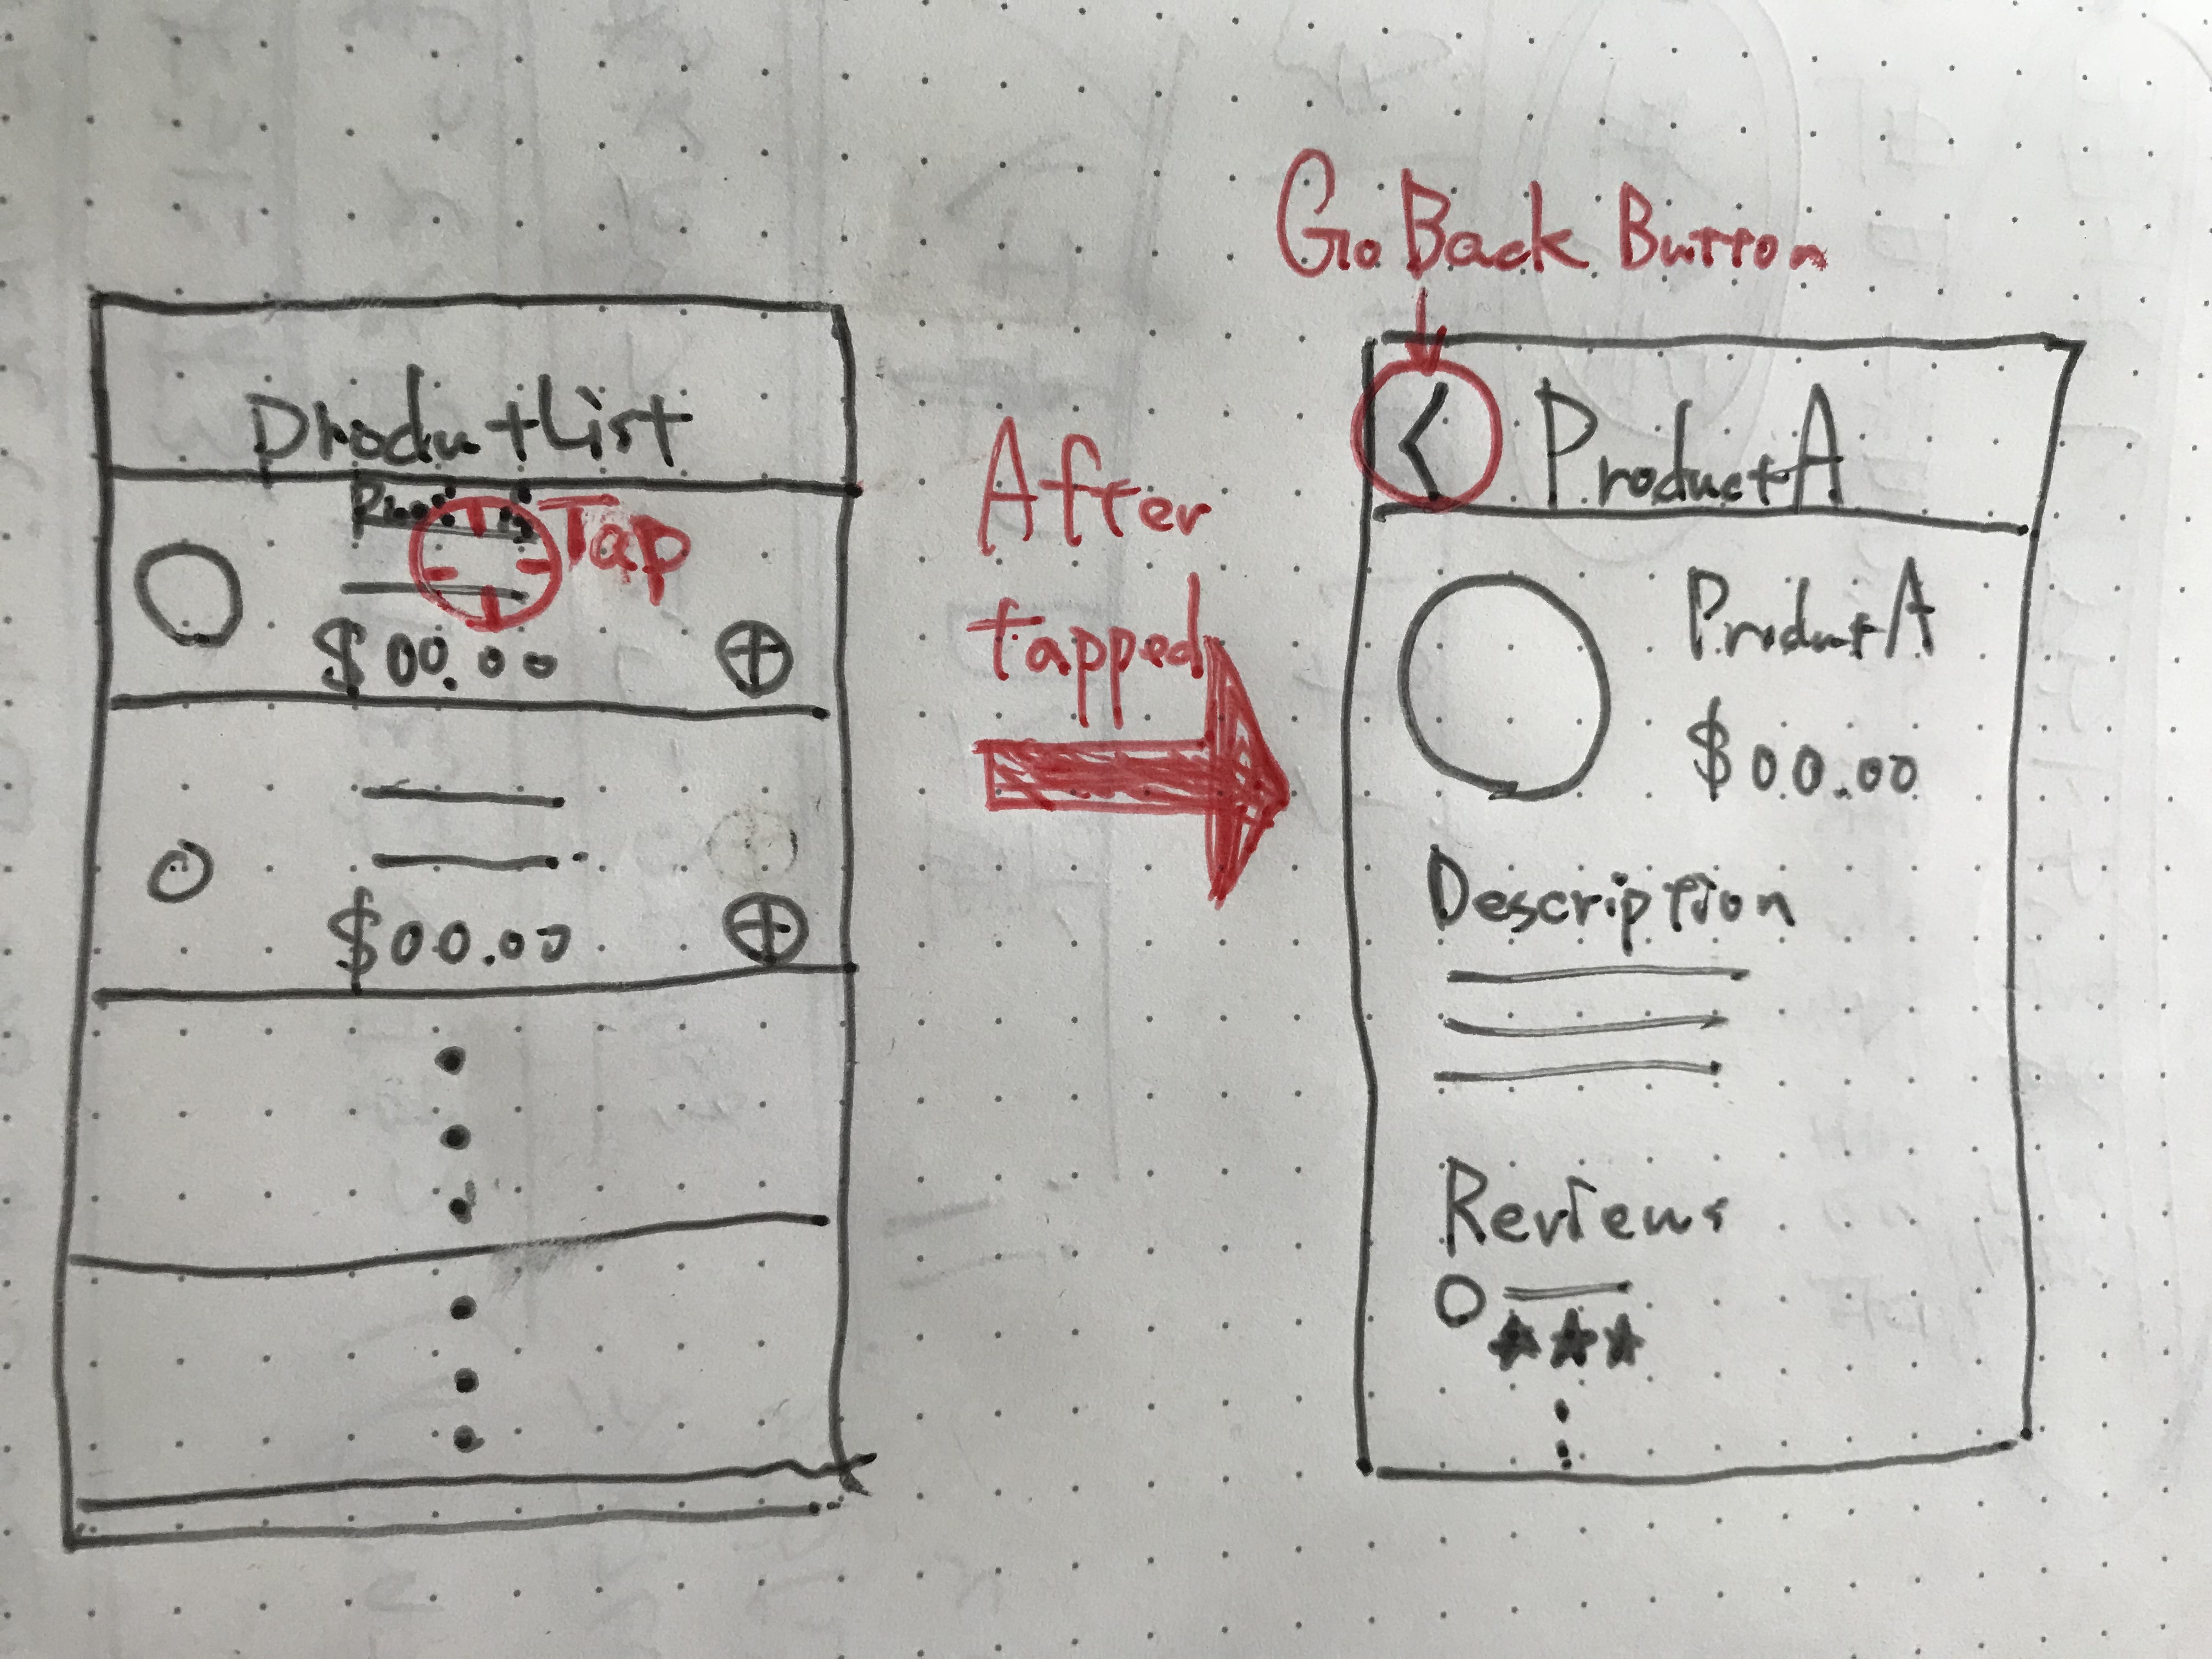 Product List
Tap
$00.00
$00.00
After
tapped
Go Back Button
< Product A
Product A
$00.00
Description
Reviews
★★★